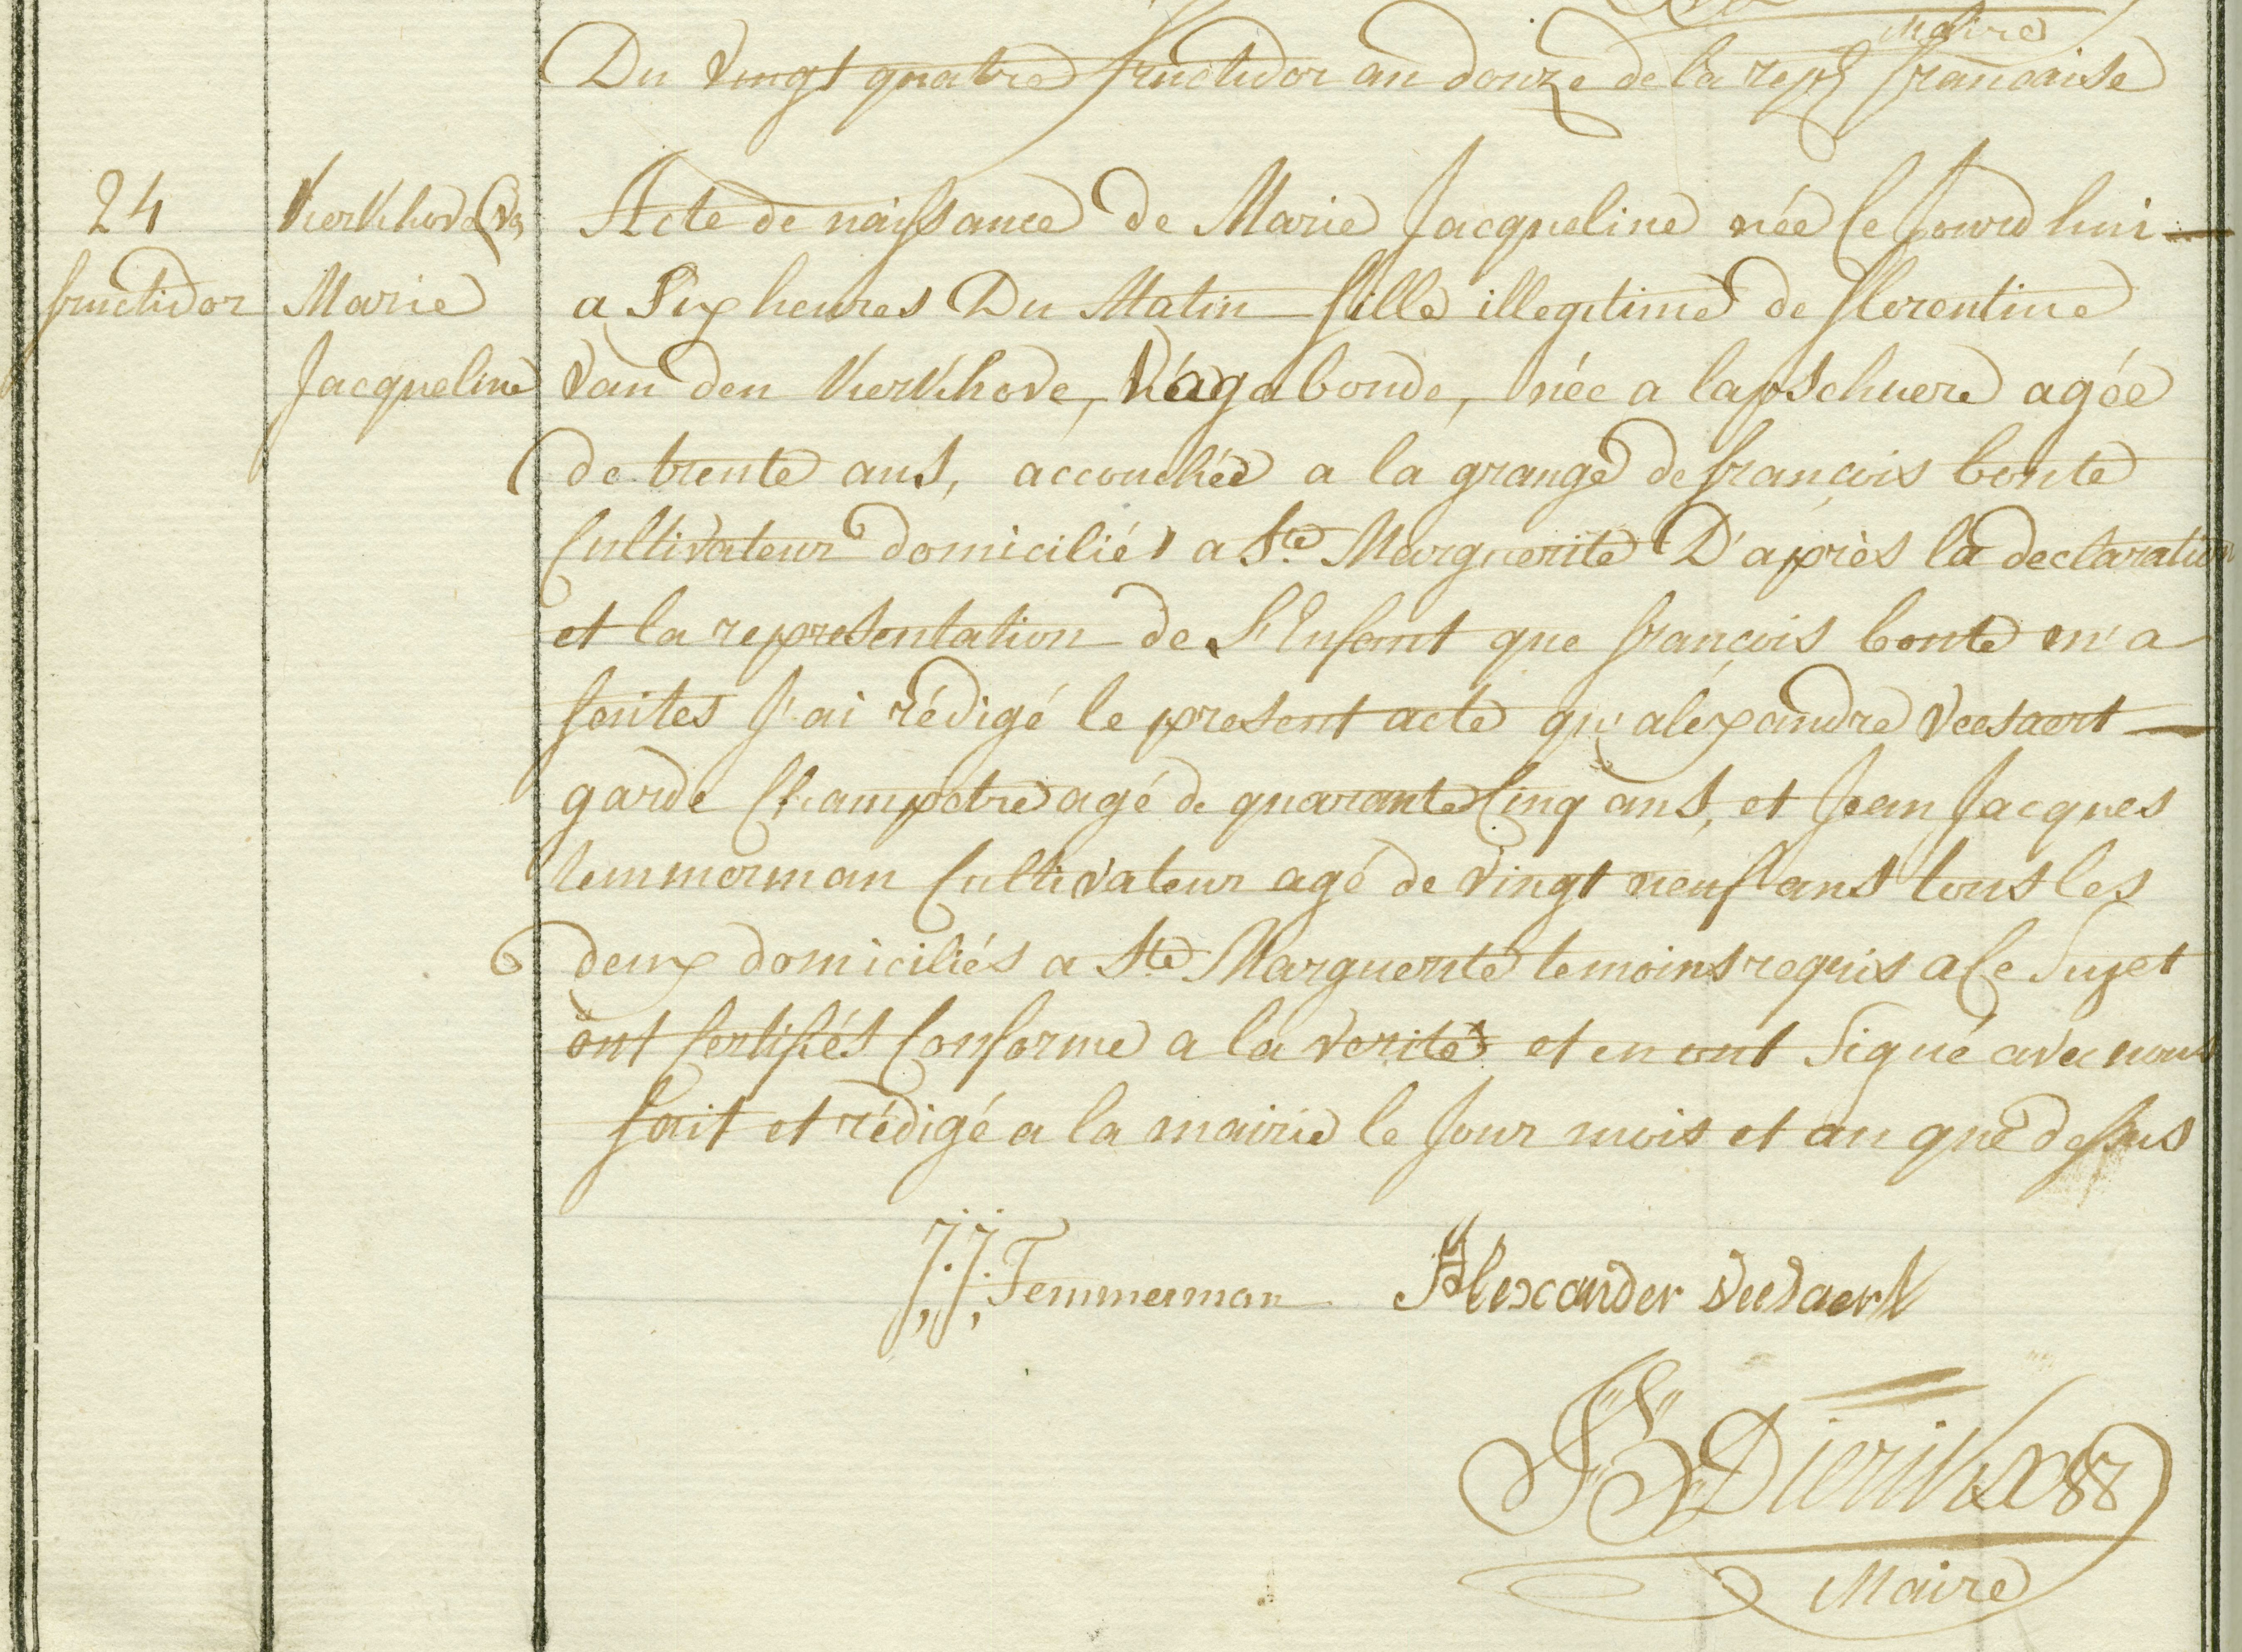 Maire
Du vingt quatre fructidor an douze de la rep française
24
fructidor
Kerkhove
Marie
Jacqueline
Acte de naissance de Marie Jacqueline née ce Jourd hui
a Six heures Du Matin fille illegitime de florentine
van den Kerkhove, vagabonde, née a lapschuere agée
de trente ans, accouchée a la grange de françois bonte
Cultivateur domicilié a Ste Marguerite D'après la declaration
et la representation de L'Enfant que françois bonte m'a
faites J'ai rédigé le present acte qu'alexandre veesaert
garde Champetre agé de quarante Cinq ans, et Jean Jacques
temmerman Cultivateur agé de vingt neuf ans tous les
deux domiciliés a Ste Marguerite temoins requis a Ce Sujet
ont Certifiés Conforme a la verité et en ont Signé avec nous
fait et rédigé a la mairie le Jour mois et an que dessus
J. J. Temmerman Alexander veesaert
JB Dierikx
Maire